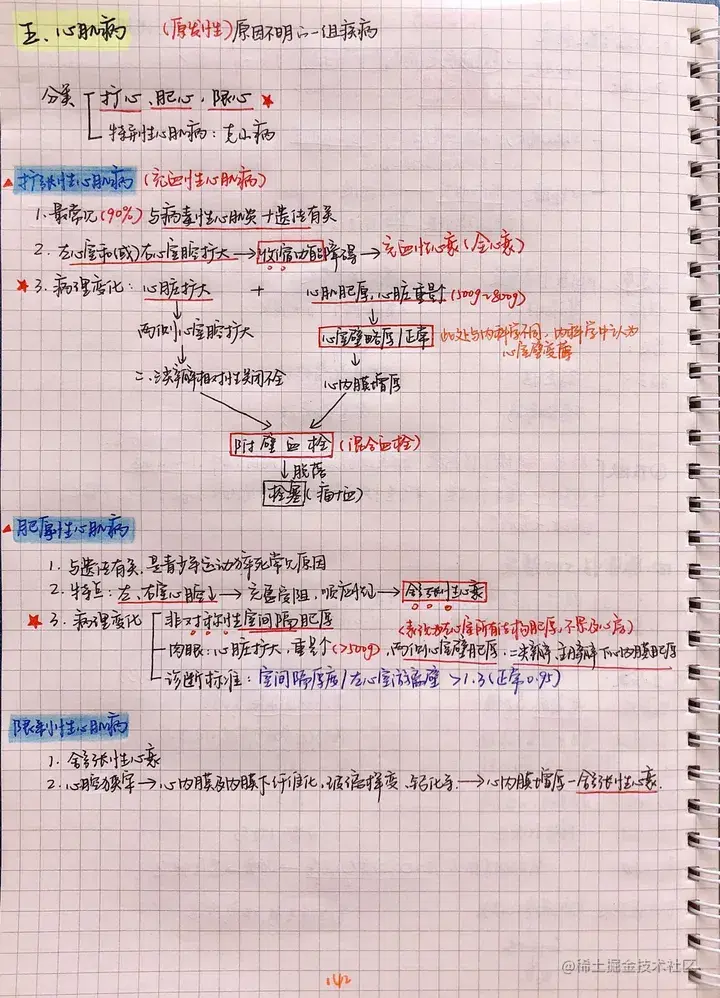 五、心肌病 (原发性)原因不明的一组疾病
分类 扩心、肥心、限心 ★
特异性心肌病:克山病
▲扩张性心肌病(充血性心肌病)
1.最常见(90%)与病毒性心肌炎+遗传有关
2.左心室和(或)右心室腔扩大→收缩功能障碍→充血性心衰(全心衰)
★3.病理变化:心脏扩大 + 心肌肥厚,心脏重量↑(500g~800g)
两侧心室腔扩大 心室壁略厚/正常 此处与内科学不同,内科学中认为
心室壁变薄
二、三尖瓣相对性关闭不全 心内膜增厚
附壁血栓(混合血栓)
↓脱落
栓塞(梗死)
▲肥厚性心肌病
1.与遗传有关,是青少年运动猝死常见原因
2.特点:左、右室心腔↓→充盈受阻,顺应性↓→舒张性心衰
★3.病理变化 非对称性室间隔肥厚
肉眼:心脏扩大,重量↑(>500g),两侧心室壁肥厚,二尖瓣、主动脉瓣下心内膜肥厚
诊断标准:室间隔厚度/左心室游离壁>1.3(正常0.95)
限制性心肌病
1.舒张性心衰
2.心腔狭窄→心内膜及内膜下纤维化,玻璃样变、钙化等→心内膜增厚-舒张性心衰.
142
@稀土掘金技术社区